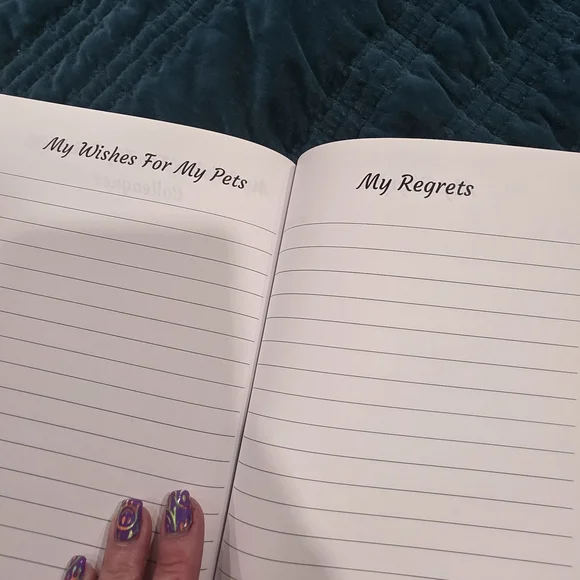 My Wishes For My Pets
My Regrets